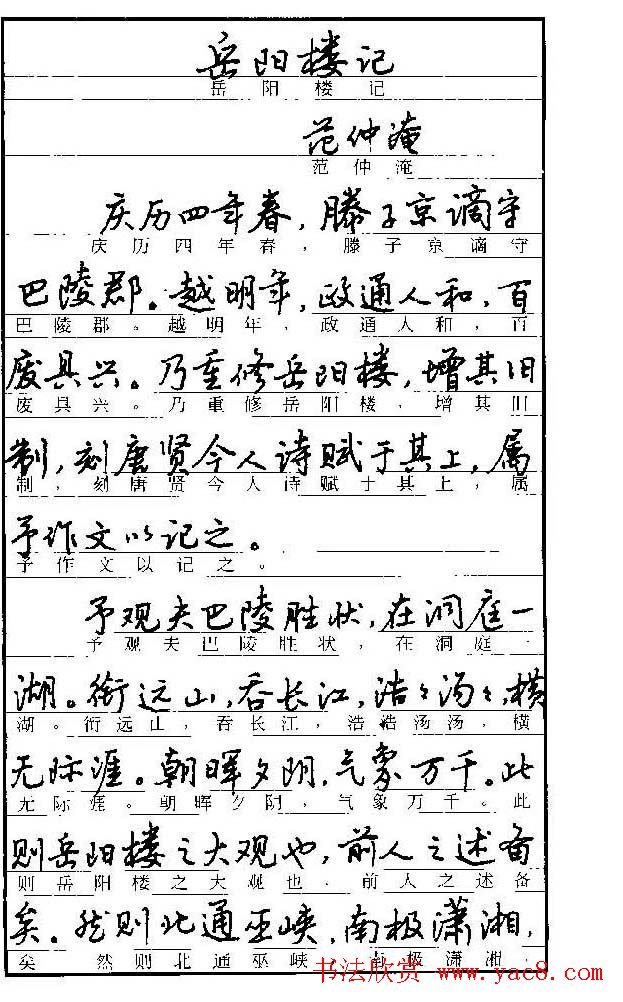 岳阳楼记
岳阳楼记
范仲淹
范仲淹
庆历四年春，滕子京谪守
庆历四年春，滕子京谪守
巴陵郡。越明年，政通人和，百
巴陵郡。越明年，政通人和，百
废具兴。乃重修岳阳楼，增其旧
废具兴。乃重修岳阳楼，增其旧
制，刻唐贤今人诗赋于其上，属
制，刻唐贤今人诗赋于其上，属
予作文以记之。
予作文以记之。
予观夫巴陵胜状，在洞庭一
予观夫巴陵胜状，在洞庭一
湖。衔远山，吞长江，浩々汤々，横
湖。衔远山，吞长江，浩浩汤汤，横
无际涯。朝晖夕阴，气象万千。此
无际涯。朝晖夕阴，气象万千。此
则岳阳楼之大观也，前人之述备
则岳阳楼之大观也，前人之述备
矣。然则北通巫峡，南极潇湘，
矣 然则北通巫峡 南极潇湘，
书法欣赏 www.yac8.com